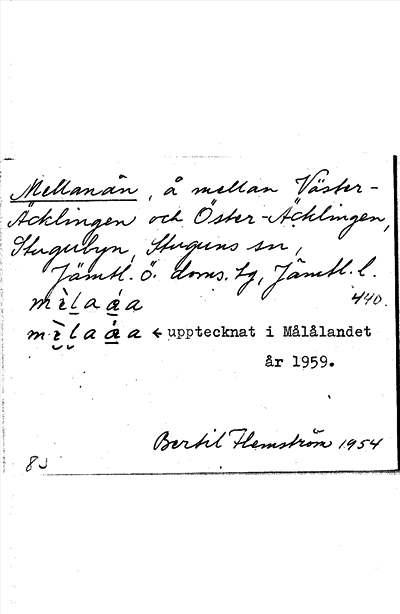 Mellanån, å mellan Väster-
Äcklingen och Öster-Äcklingen,
Stugubyn, Stuguns sn,
Jämtl. Ö. doms. tg, Jämtl. l.
440.
upptecknat i Målålandet
år 1959.
Bertil Flemström 1954
8J